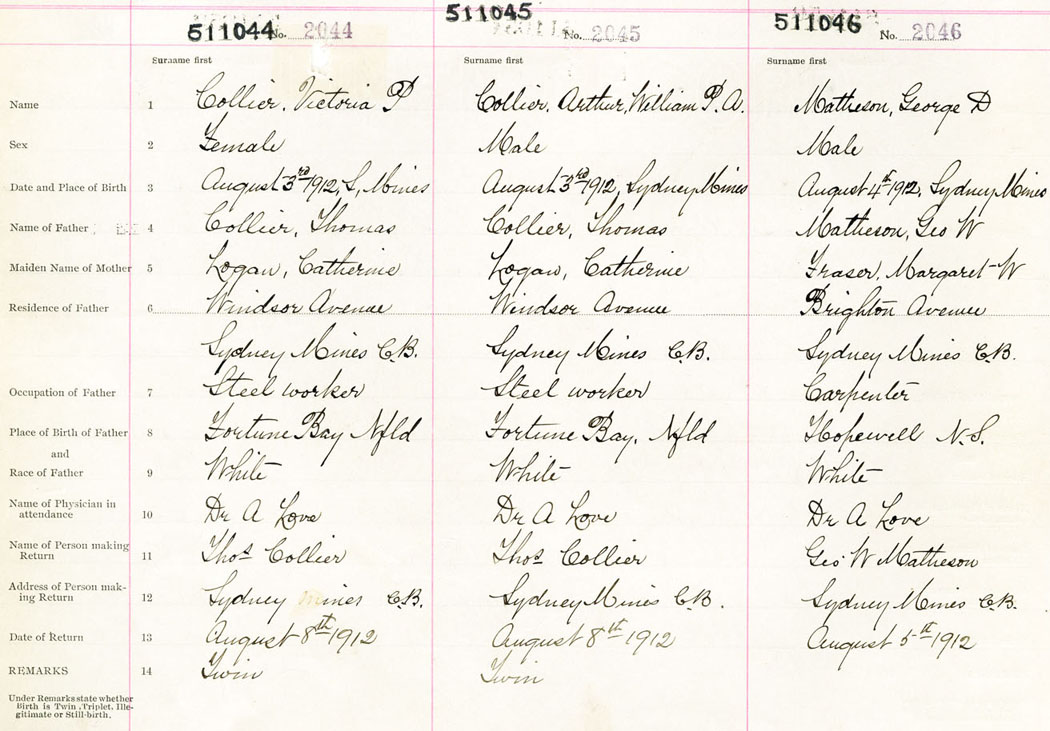 511044 No. 2044 511045 No. 2045 511046 No. 2046
Surname first Surname first Surname first
Name 1 Collier, Victoria P Collier, Arthur, William P. A. Matheson, George D
Sex 2 Female Male Male
Date and Place of Birth 3 August 3rd 1912, S, Mines August 3rd 1912, Sydney Mines August 4th 1912, Sydney Mines
Name of Father 4 Collier, Thomas Collier, Thomas Matheson, Geo W
Maiden Name of Mother 5 Logan, Catherine Logan, Catherine Fraser, Margaret W
Residence of Father 6 Windsor Avenue Windsor Avenue Brighton Avenue
Sydney Mines C.B. Sydney Mines C.B. Sydney Mines C.B.
Occupation of Father 7 Steel worker Steel worker Carpenter
Place of Birth of Father 8 Fortune Bay Nfld Fortune Bay, Nfld Hopewell N.S.
and
Race of Father 9 White White White
Name of Physician in
attendance 10 Dr A Love Dr A Love Dr A Love
Name of Person making
Return 11 Thos Collier Thos Collier Geo W Matheson
Address of Person mak-
ing Return 12 Sydney Mines C.B. Sydney Mines C.B. Sydney Mines C.B.
Date of Return 13 August 8th 1912 August 8th 1912 August 5th 1912
REMARKS 14 Twin Twin
Under Remarks state whether
Birth is Twin, Triplet, Ille-
gitimate or Still-birth.